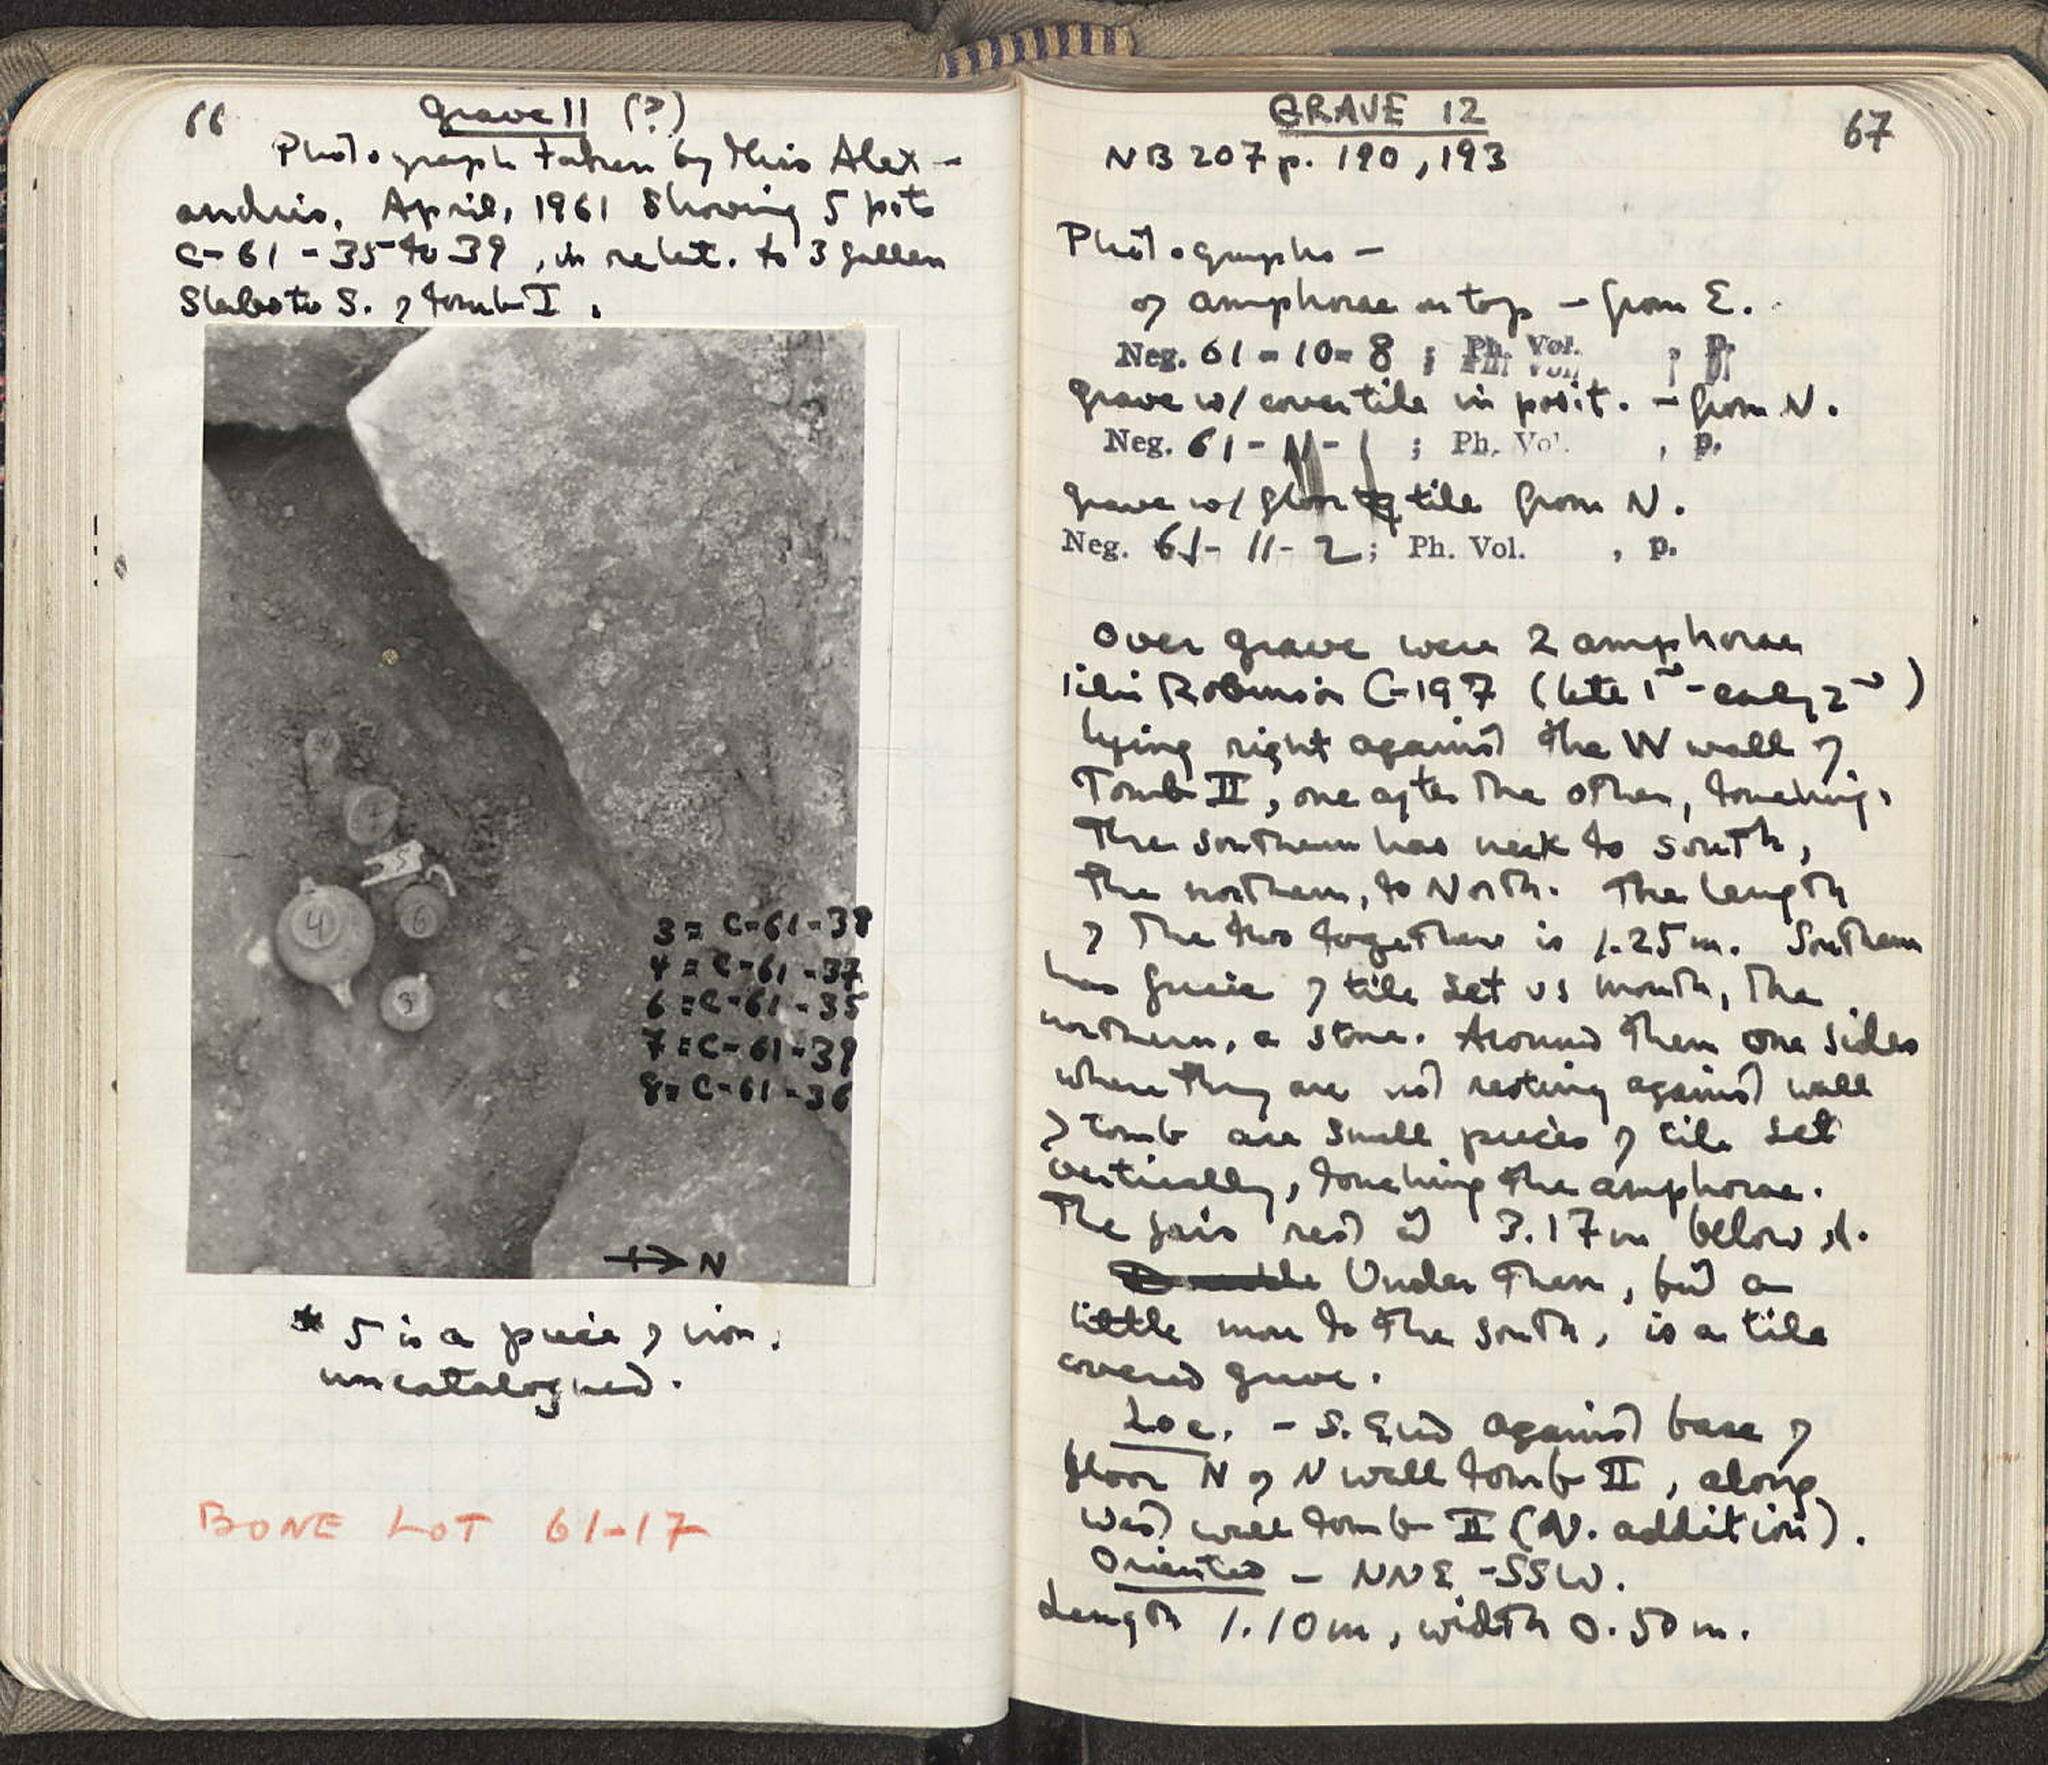 66
Grave 11 (?)
Photograph taken by Miss Alex-
andris, April, 1961 showing 5 pots
C-61-35 to 39, in relat. to 3 fallen
Slabs to S. of tomb I.
4
5
6
3
3 = C-61-38
4 = C-61-37
6 = C-61-35
7 = C-61-39
8 = C-61-36
N
* 5 is a piece of iron,
uncatalogued.
BONE LOT 61-17
67
GRAVE 12
NB 207 p. 190, 193
Photographs —
of amphorae on top — from E.
Neg. 61-10-8 ; Ph. Vol. , p.
grave w/ cover tile in posit. — from N.
Neg. 61-11-1 ; Ph. Vol. , p.
grave w/ floor tile from N.
Neg. 61-11-2 ; Ph. Vol. , p.
Over grave were 2 amphorae
like Robinson G-197 (late 1st - early 2nd)
lying right against the W wall of
Tomb II, one after the other, touching.
The southern has neck to south,
the northern, to North. The length
of the two together is 1.25 m. Southern
has piece of tile set vs mouth, the
northern, a stone. Around them on sides
where they are not resting against wall
of tomb are small pieces of tile set
vertically, touching the amphorae.
The jars rest at 3.17 m below
Under them, but a
little more to the south, is a tile
covered grave.
Loc. - S. End against base of
floor N of N wall tomb II, along
west wall tomb II (N. addition).
Oriented - NNE - SSW.
Length 1.10 m, width 0.50 m.